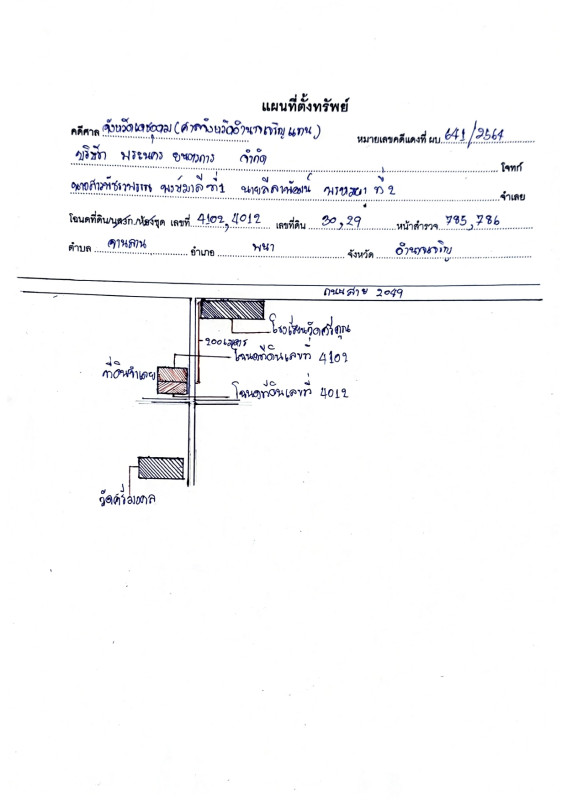 แผนที่ตั้งทรัพย์
คดีศาล จังหวัดเดชอุดม (ศาลจังหวัดอำนาจเจริญแทน) หมายเลขคดีแดงที่ ผบ. 641/2564
บริษัท พระนคร ยนตรการ จำกัด โจทก์
ที่ 1 ที่ 2 จำเลย
โฉนดที่ดิน/นส.3ก./ห้องชุด เลขที่ 4102, 4012 เลขที่ดิน 30, 29 หน้าสำรวจ 785, 786
ตำบล อำเภอ พนา จังหวัด อำนาจเจริญ
ถนนสาย 2049
200 เมตร
โฉนดที่ดินเลขที่ 4102
ที่ดินจำเลย
โฉนดที่ดินเลขที่ 4012
วัดศรีมงคล